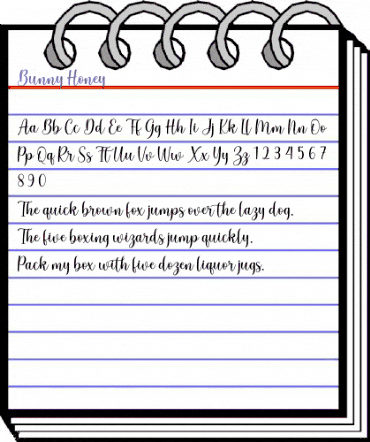 Bunny Honey
Aa Bb Cc Dd Ee Ff Gg Hh Ii Jj Kk Ll Mm Nn Oo
Pp Qq Rr Ss Tt Uu Vv Ww Xx Yy Zz 1 2 3 4 5 6 7
8 9 0
The quick brown fox jumps over the lazy dog.
The five boxing wizards jump quickly.
Pack my box with five dozen liquor jugs.